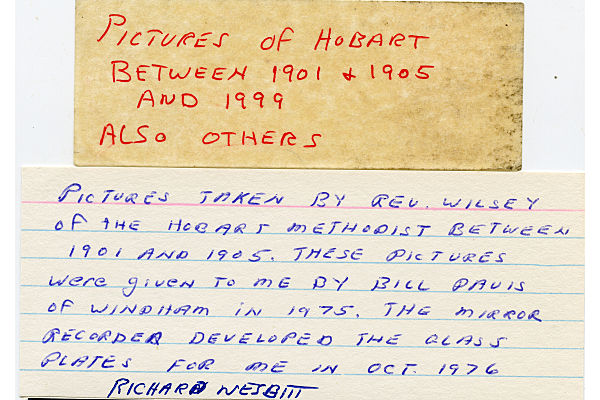 PICTURES OF HOBART
BETWEEN 1901 & 1905
AND 1999
ALSO OTHERS
PICTURES TAKEN BY REV. WILSEY
OF THE HOBART METHODIST BETWEEN
1901 AND 1905. THESE PICTURES
were given TO ME BY BILL DAVIS
OF WINDHAM IN 1975. THE MIRROR
RECORDER DEVELOPED THE GLASS
PLATES FOR ME IN OCT. 1976
RICHARD NESBITT